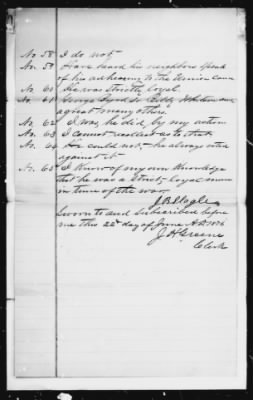 No. 58 I do not
No. 59 Have heard his neighbors speak
of his adhearing to the Union cause
No. 60 He was Strictly loyal
No. 61 George Byrd Jo
a great many others.
No. 62 I was, he did, by my action
No. 63 I cannot recollect as to that
No. 64 He could not, he always voted
against it
No. 65 I know of my own knowledge
that he was a Strict, loyal man
in time of the war
J. B.
Sworn to and Subscribed before
me this 22d day of June A.D. 1876
J H Greene
Clerk